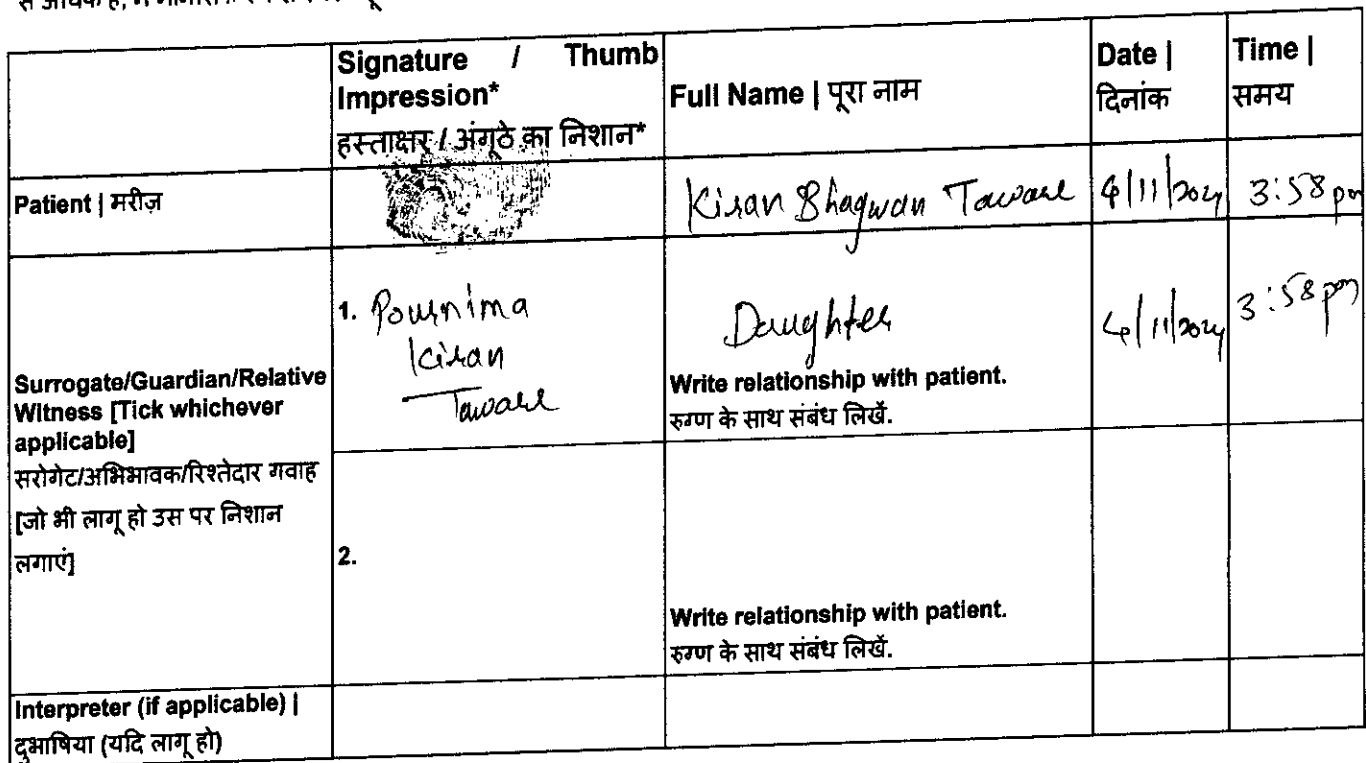 से अधिक है, मैं
Signature / Thumb
Impression*
हस्ताक्षर / अंगूठे का निशान*
Full Name | पूरा नाम
Date |
दिनांक
Time |
समय
Patient | मरीज़
Kiran Bhagwan Taware
4/11/2024
3:58 pm
Surrogate/Guardian/Relative
Witness [Tick whichever
applicable]
सरोगेट/अभिभावक/रिश्तेदार गवाह
[जो भी लागू हो उस पर निशान
लगाएं]
1. Pournima
Kiran
Taware
Daughter
Write relationship with patient.
रुग्ण के साथ संबंध लिखें.
4/11/2024
3:58 pm
2.
Write relationship with patient.
रुग्ण के साथ संबंध लिखें.
Interpreter (if applicable) |
दुभाषिया (यदि लागू हो)